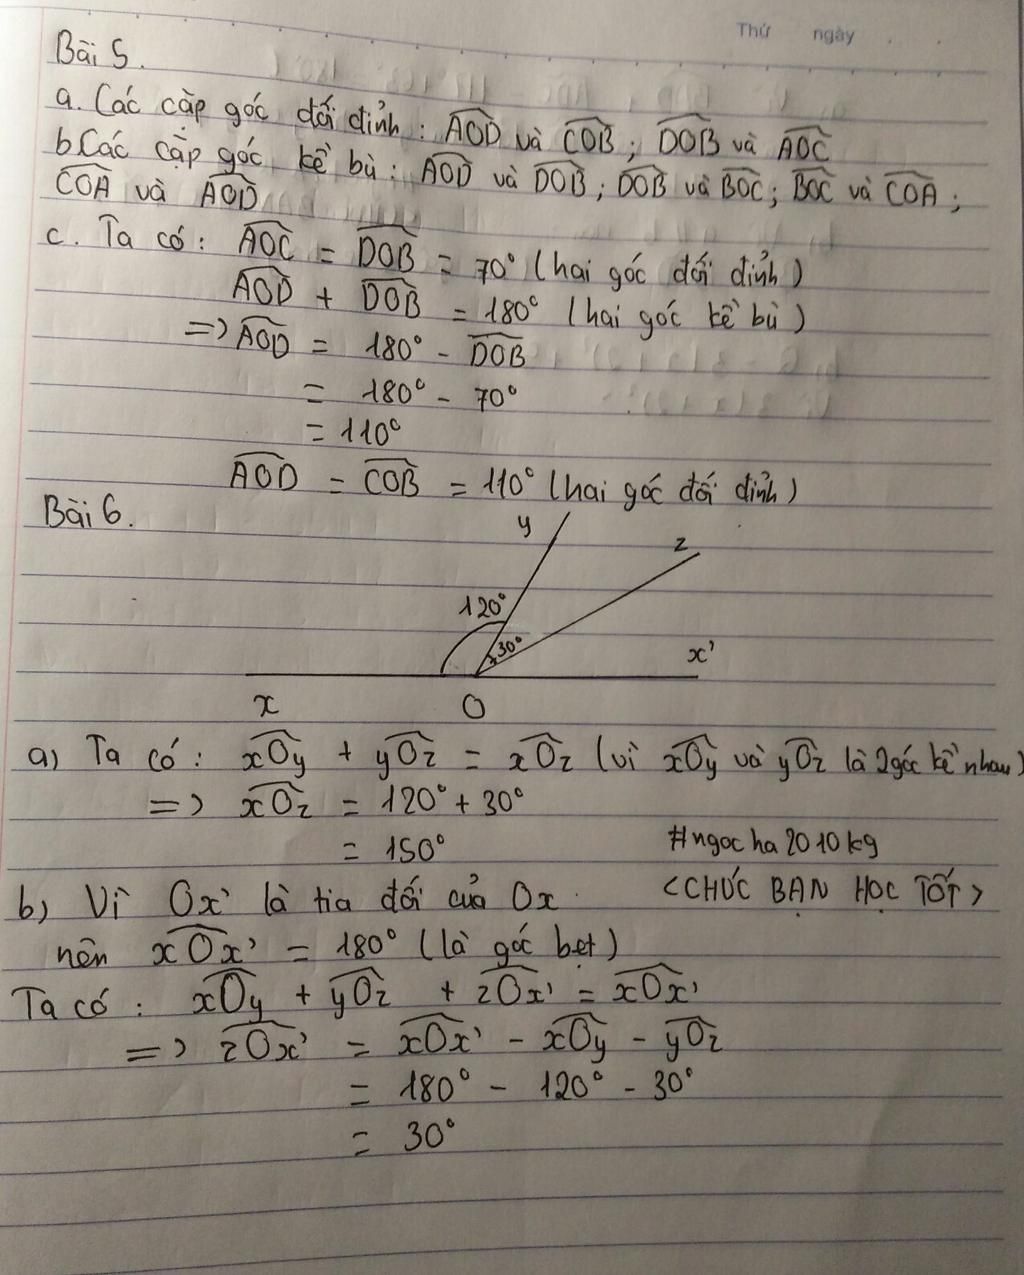 Thứ ngày
Bài 5.
a. Các cặp góc đối đỉnh : AOD và COB ; DOB và AOC
b Các cặp góc kề bù : AOD và DOB ; DOB và BOC ; BOC và COA ;
COA và AOD
c. Ta có : AOC = DOB = 70° (hai góc đối đỉnh)
AOD + DOB = 180° (hai góc kề bù)
=> AOD = 180° - DOB
= 180° - 70°
= 110°
AOD = COB = 110° (hai góc đối đỉnh)
Bài 6.
y
z
120°
30°
x'
x O
a) Ta có : xOy + yOz = xOz (vì xOy và yOz là 2 góc kề nhau)
=> xOz = 120° + 30°
= 150°
#ngocha2010kg
<CHÚC BẠN HỌC TỐT>
b) Vì Ox' là tia đối của Ox
nên xOx' = 180° (là góc bẹt)
Ta có : xOy + yOz + zOx' = xOx'
=> zOx' = xOx' - xOy - yOz
= 180° - 120° - 30°
= 30°